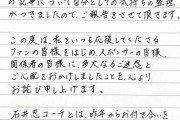 の記事について自分としての気持ちの整理
がつきましたので、ご報告させて頂きます。
この度は、私をいつも応援してくださる
ファンの皆様をはじめ、スポンサーの皆様、
関係者の皆様に、多大なるご迷惑と
ご心配をおかけしましたことを、心より
お詫び申し上げます。
石井忍コーチとは、昨年からお付き合いを